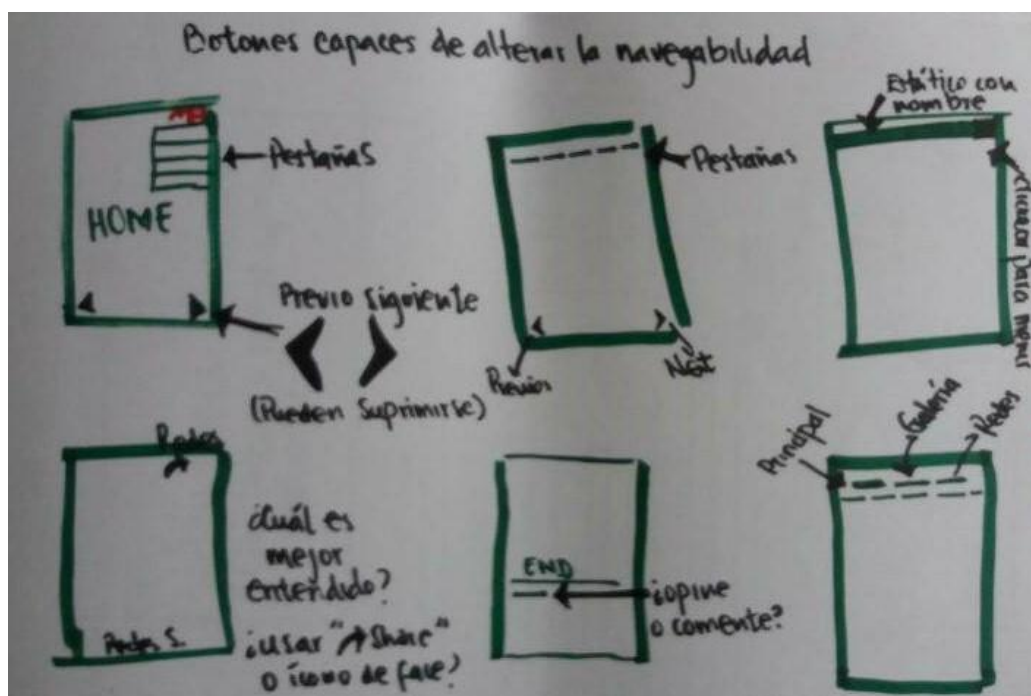 Botones capaces de alterar la navegabilidad
ME
Pestañas
HOME
Previo siguiente
(Pueden suprimirse)
Pestañas
Previos
Next
Estático con
nombre
clickear para menus
Redes
Redes S.
¿Cuál es
mejor
entendido?
¿usar "Share"
o ícono de face?
END
¿opine
o comente?
Principal
Galería
Redes